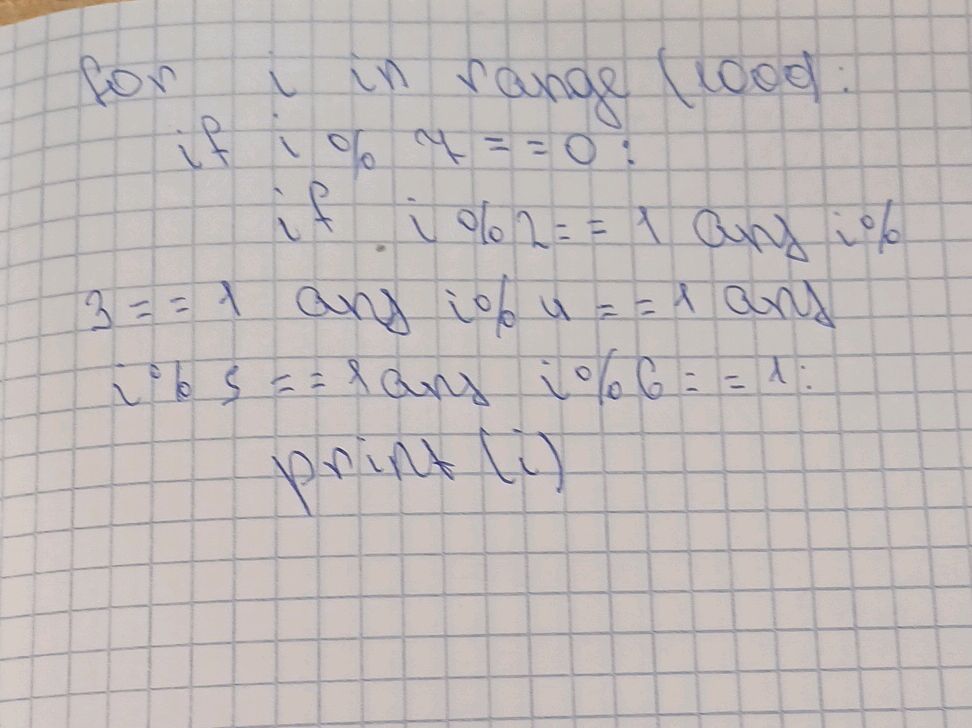 for i in range (1000):
if i % 7 == 0 :
if i % 2 == 1 and i %
3 == 1 and i % 4 == 1 and
i % 5 == 1 and i % 6 == 1 :
print (i)